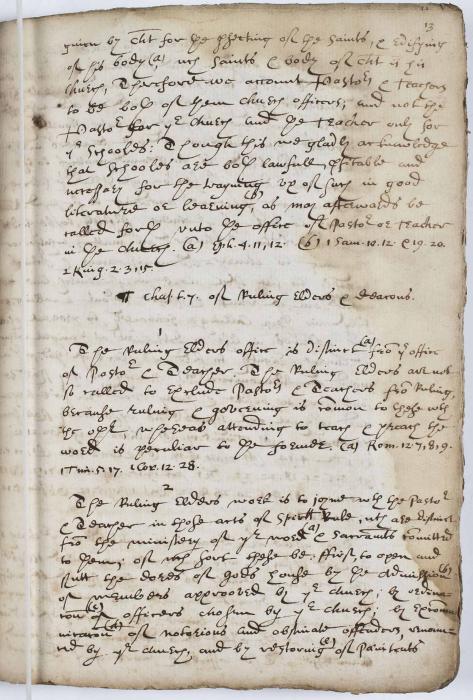 13
given by Cht for the pfecting of the Saints, & Edifying
of his body (a) wch Saints & body of Cht is his
Church; Therefore we account Pastors & Teachers
to be both of them Church officers; and not the
Pastor for ye Church and the Teacher only for
ye Schooles: Though this we gladly acknowledge
that Schooles are both lawfull, pfitable and
necessary for the trayning (b) up of such in good
literature or learning, as may afterwards be
called forth unto the office of Pastor or Teacher
in the Church. (a) Eph. 4. 11, 12. (b) 1 Sam. 10. 12. & 19. 20.
2 King. 2. 3, 15.
Chapt. 7. of Ruling Elders & Deacons.
1
The Ruling Elders office is distinct (a) fro ye office
of Pastor & Teacher. The Ruling Elders are not
so called to Exclude Pastors & Teachers fro Ruling,
because ruling & governing is comon to these wth
the other, whereas attending to teach & preach the
word is peculiar to the former. (a) Rom. 12. 7, 8, 9.
1 Tim. 5. 17. 1 Cor. 12. 28.
2
The Ruling Elders work is to joyne wth the Pastor
& Teacher in those acts of Spirll Rule, wch are distinct
fro the ministery of ye word (a) & Sacramts comitted
to them; of wch sort these be: ffirst to open and
shutt the dores of Gods house by the Admission (b)
of members approoved by ye Church; by ordina-
tion (c) of officers chosen by ye Church; by Excom-
munication (d) of notorious and obstinate offenders, renoun-
ced by ye Church, and by restoring (e) of Penitents